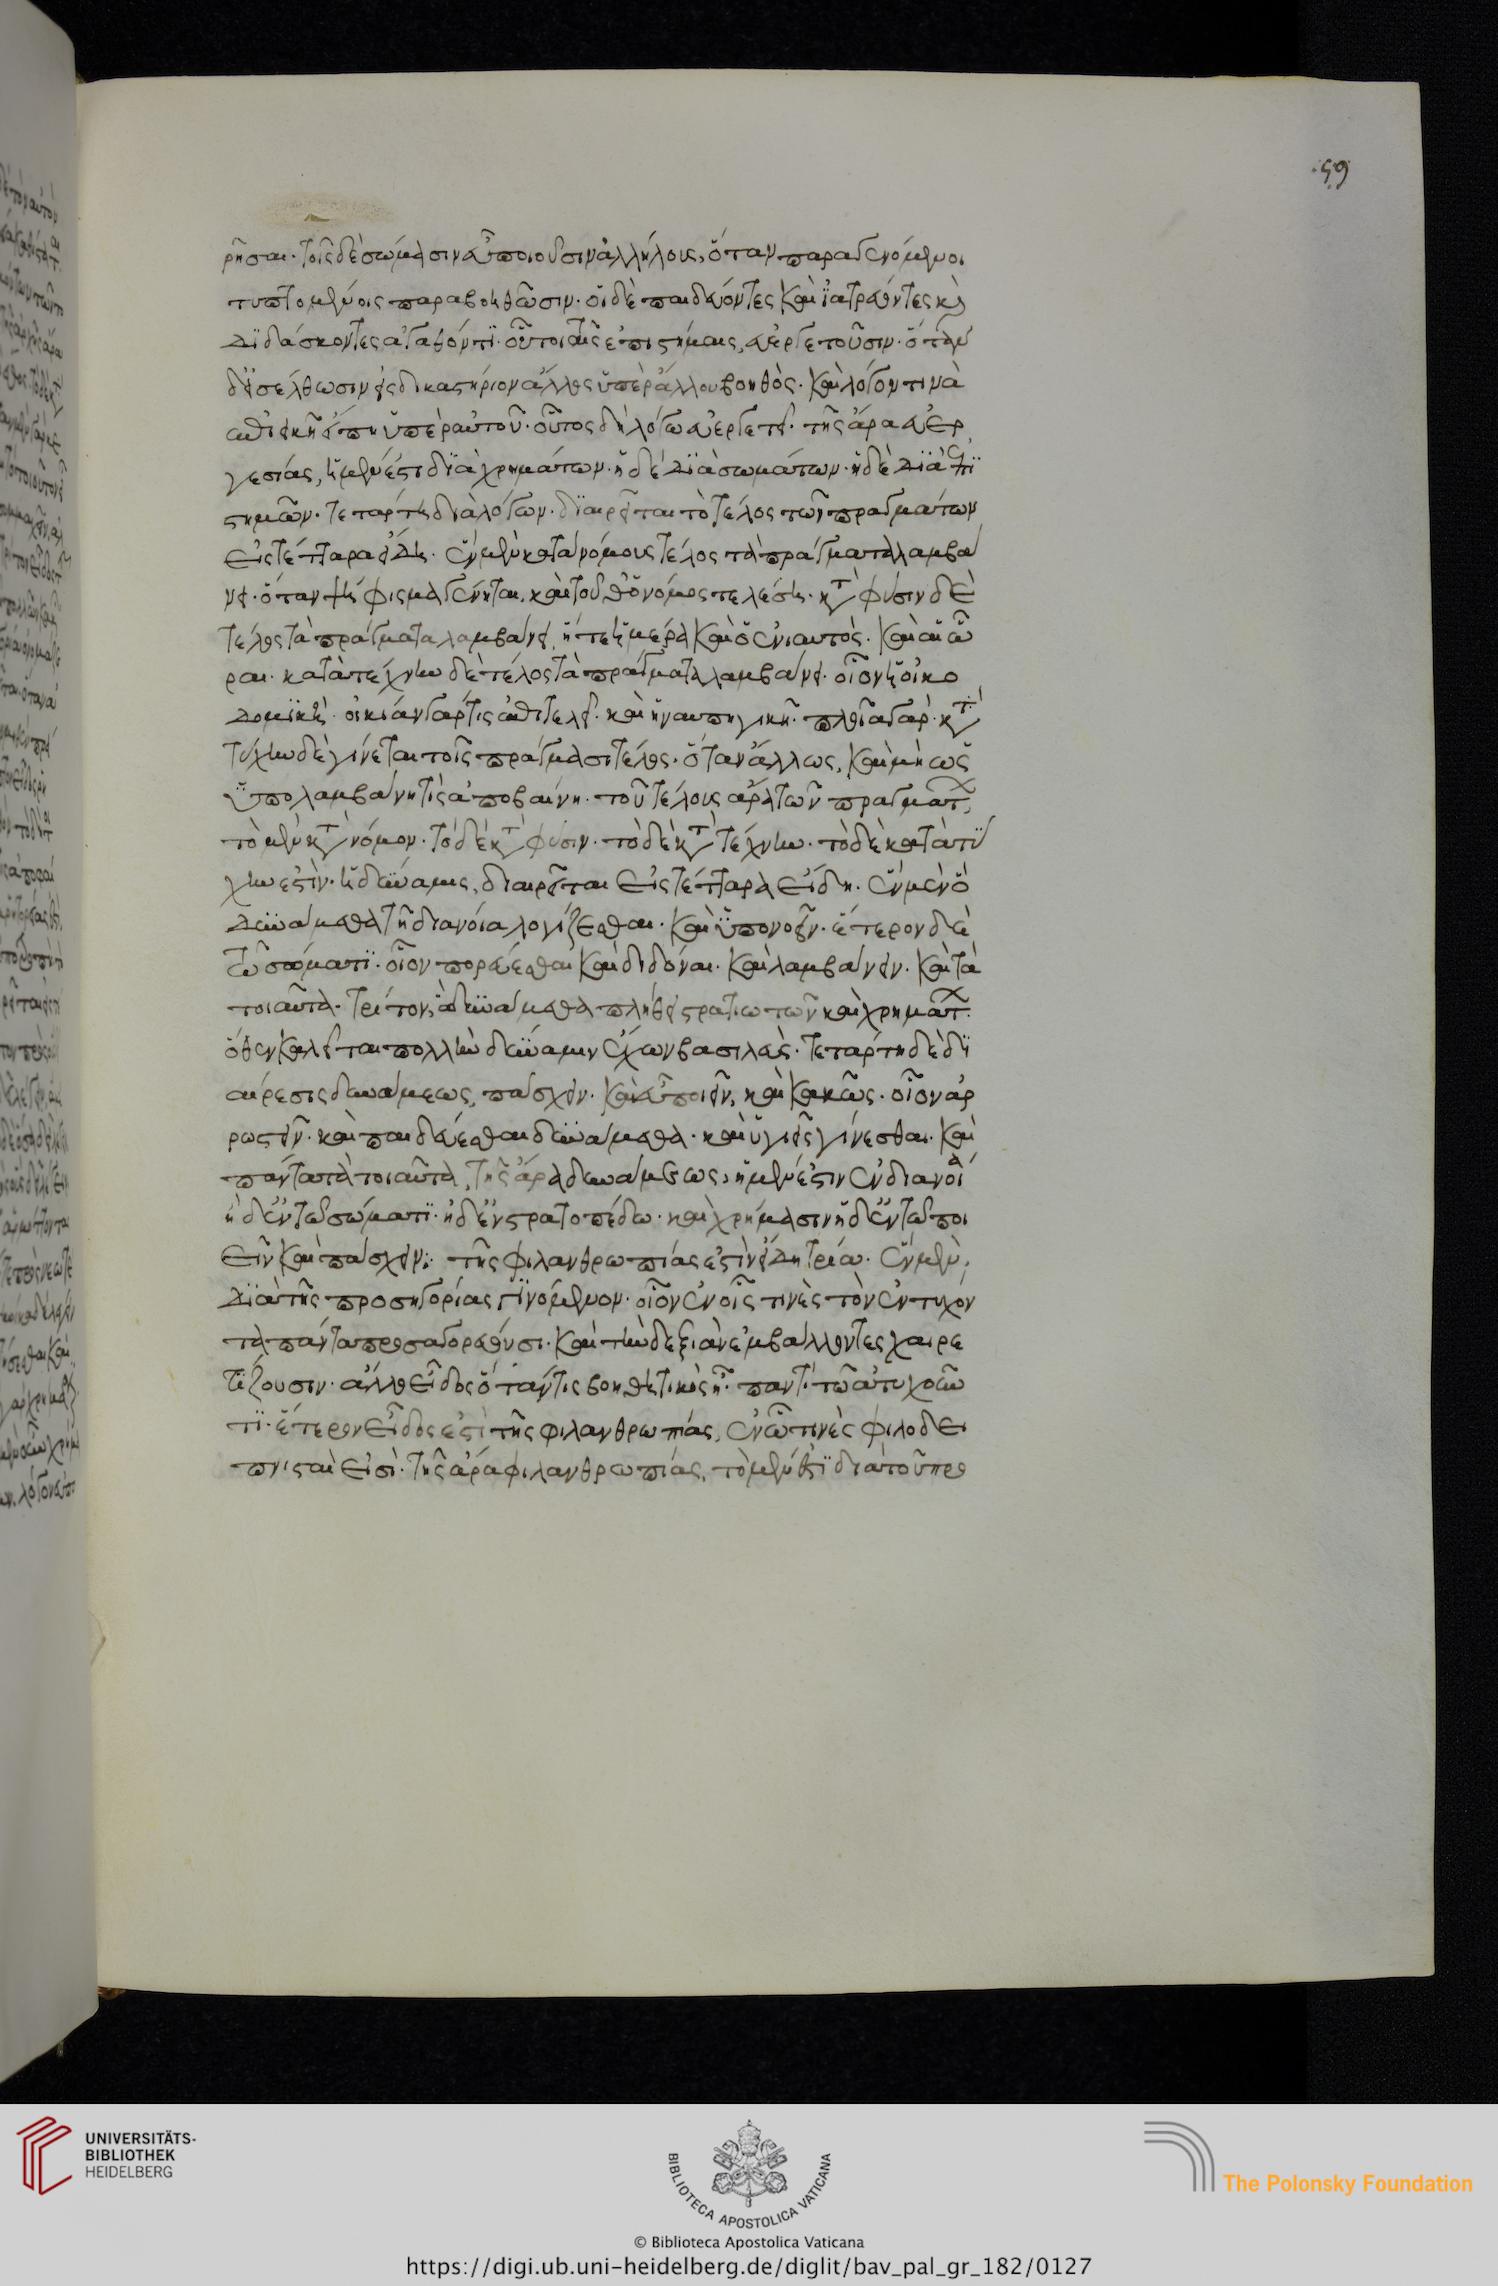 59
ρῆσαι· τοῖς δὲ σώμασιν εὖ ποιοῦσιν ἀλλήλους, ὅταν παραγενόμενοι
τυπτομένοις παραβοηθῶσιν· οἱ δὲ παιδεύοντες καὶ ἰατρεύοντες κὶ
διδάσκοντες ἀγαθόν τι· οὗτοι ταῖς ἐπιστήμαις εὐεργετοῦσιν· ὅταν
δ' εἰσέλθωσιν εἰς δικαστήριον ἄλλος ὑπὲρ ἄλλου βοηθὸς· καὶ λόγον τινὰ
ἐπιεικῆ εἴπη ὑπὲρ αὐτοῦ· οὗτος δὴ λόγω εὐεργετεῖ· τῆς ἄρα εὐερ
γεσίας, ἡ μέν ἐστι διὰ χρημάτων· ἡ δὲ διὰ σωμάτων· ἡ δὲ διὰ ἐπι
στημῶν· τετάρτη διὰ λόγων· διαιρεῖται τὸ τέλος τῶν πραγμάτων
εἰς τέτταρα εἴδη. ἓν μὲν κατὰ νόμους τέλος τὰ πράγματα λαμβά
νει· ὅταν ψήφισμα γένηται, καὶ τοῦθ' ὁ νόμος τελέση· κτ φύσιν δὲ
τέλος τὰ πράγματα λαμβάνει, ἥ τε ἡμέρα καὶ ὁ ἐνιαυτὸς· καὶ αἱ ὧ
ραι· κατὰ τέχνην δὲ τέλος τὰ πράγματα λαμβάνει· οἷον ἡ οἰκο
δομικὴ· οἰκίαν γάρ τις ἐπιτελεῖ· καὶ ἡ ναυπηγικὴ· πλοῖα γάρ· κτ
τύχην δὲ γίνεται τοῖς πράγμασι τέλος· ὅταν ἄλλως, καὶ μὴ ὡς
ὑπολαμβάνη τὶς ἀποβαίνη· τοῦ τέλους ἄρα τῶν πραγματ
τὸ μὲν κτ νόμον· τὸ δὲ κτ φύσιν· τὸ δὲ κτ τέχνην· τὸ δὲ κατὰ τύ
χην ἐστὶν· ἡ δύναμις, διαιρεῖται εἰς τέτταρα εἴδη. ἓν μὲν ὃ
δυνάμεθα τῆ διανοία λογίζεσθαι· καὶ ὑπονοεῖν· ἕτερον δὲ
τῶ σώματι· οἷον πορεύεσθαι καὶ διδόναι· καὶ λαμβάνειν· καὶ τὰ
τοιαῦτα· τρίτον, ὃ δυνάμεθα πλήθει στρατιωτῶν καὶ χρηματ
ὅθεν καλεῖται πολλὴν δύναμιν ἔχων βασιλεὺς· τετάρτη δὲ δι
αίρεσις δυνάμεως, πάσχειν· καὶ εὖ ποιεῖν, καὶ κακῶς· οἷον ἀρ
ρωστεῖν· καὶ παιδεύεσθαι δυνάμεθα· καὶ ὑγιεῖς γίνεσθαι· καὶ
πάντα τὰ τοιαῦτα, τῆς ἄρα δυνάμεως, ἡ μέν ἐστιν ἐν διανοία
ἡ δ' ἐν τῶ σώματι· ἡ δ' ἐν στρατοπέδω· καὶ χρήμασιν ἡ δ' ἐν τῶ ποι
εῖν καὶ πάσχειν: τῆς φιλανθρωπίας ἐστὶν εἴδη τρία· ἓν μὲν
διὰ τῆς προσηγορίας γινόμενον· οἷον ἐν οἷς τινὲς τὸν ἐντυχόν
τα πάντα προσαγορεύουσι· καὶ τὴν δεξιὰν ἐμβάλλοντες χαιρε
τίζουσιν· ἄλλο εἶδος ὅταν τις βοηθητικὸς ἦ· παντὶ τῶ ἀτυχοῦν
τι· ἕτερον εἶδος ἐστὶ τῆς φιλανθρωπίας, ἐν ὧ τινὲς φιλοδει
πνισταὶ εἰσὶ· τῆς ἄρα φιλανθρωπίας, τὸ μέν ἐστι διὰ τοῦ προ
UNIVERSITÄTS-
BIBLIOTHEK
HEIDELBERG
BIBLIOTECA APOSTOLICA VATICANA
The Polonsky Foundation
© Biblioteca Apostolica Vaticana
https://digi.ub.uni-heidelberg.de/diglit/bav_pal_gr_182/0127